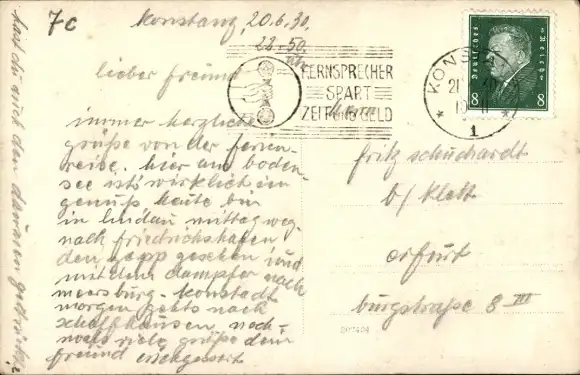 7c
Konstanz, 20.6.30.
22.50 Uhr
lieber Freund
immer herzliche
grüße von der ferien-
reise. hier am boden-
see ist's wirklich ein
genuß heute bin
in lindau mittag weg-
nach friedrichshafen
den zepp gesehen und
mit dem dampfer nach
meersburg - konstadt
morgen geht's nach
schaffhausen, noch-
mals viele grüße dein
freund
hast du auch den daumen gedrückt?
FERNSPRECHER
SPART
ZEIT UND GELD
KONSTANZ
1
Deutsches Reich
8 8
herrn
fritz schuchardt
b/ Klett
erfurt
burgstraße 8 III